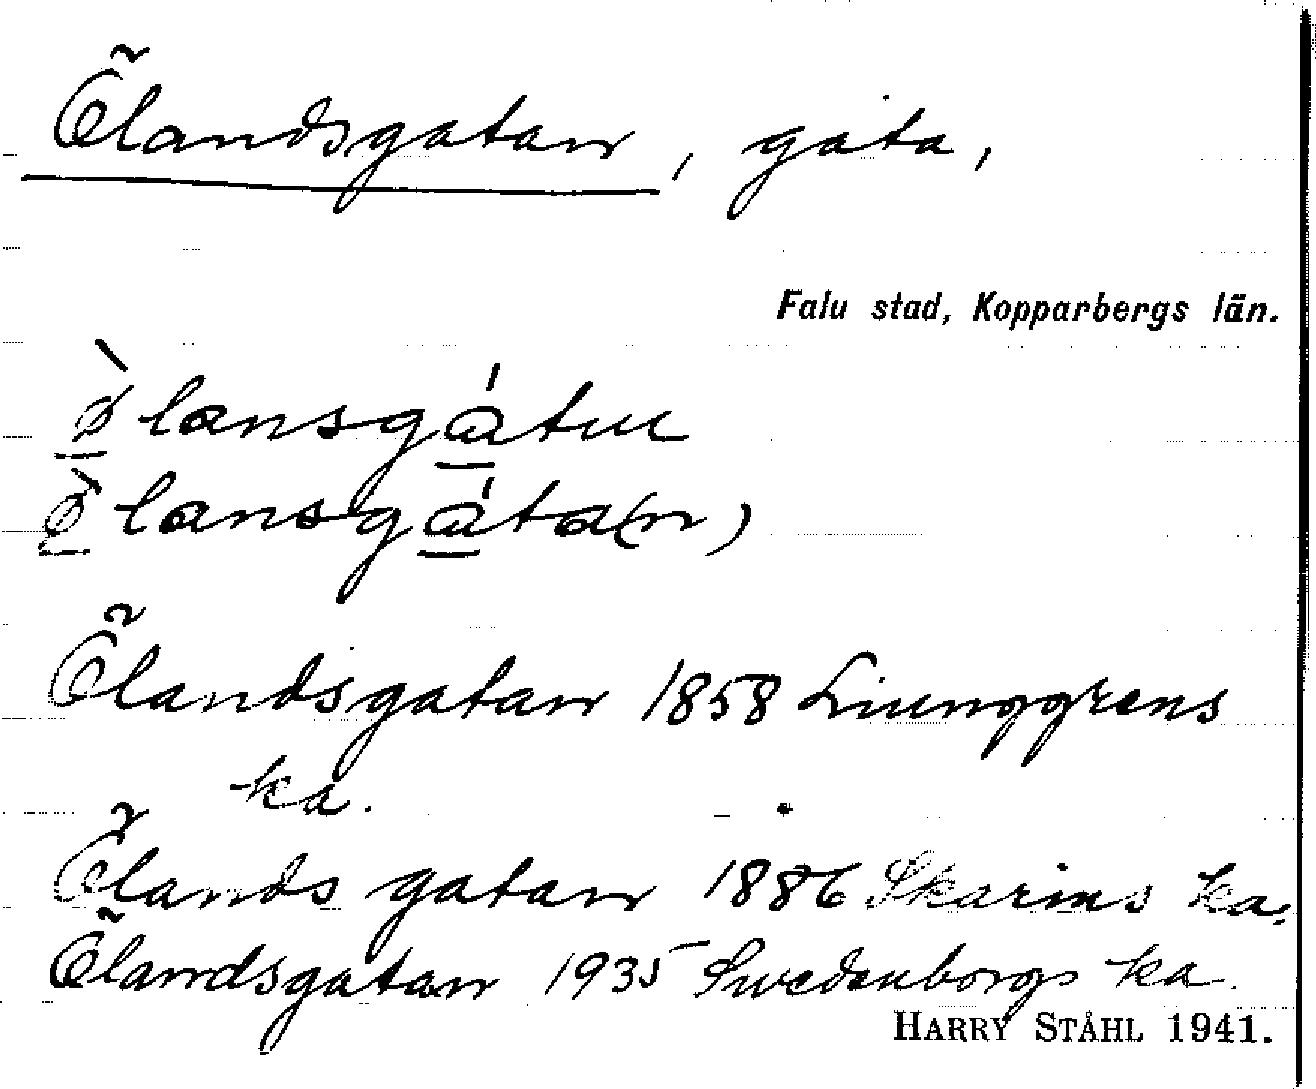 Ölandsgatan, gata,
Falu stad, Kopparbergs län.
ø̀lansgátu
ø̀lansgáta(n)
Ölandsgatan 1858 Liunggrens
ka.
Ölands gatan 1886 Skarins ka.
Ölandsgatan 1935 Swedenborgs ka.
HARRY STÅHL 1941.